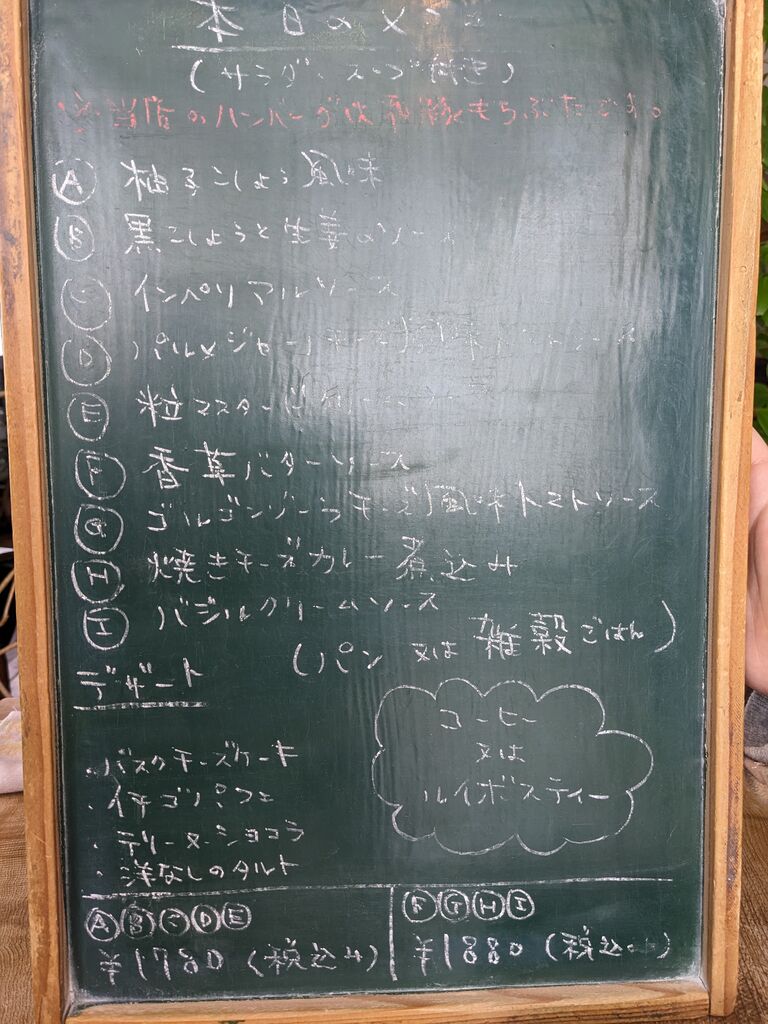 本日のメニュー
(サラダ・スープ付き)
※当店のハンバーグは もちぶたです。
Ⓐ 柚子こしょう風味
Ⓑ 黒こしょうと生姜のソース
Ⓒ インペリアルソース
Ⓓ パルメジャーノチーズ風味トマトソース
Ⓔ 粒マスタードクリームソース
Ⓕ 香草バターソース
Ⓖ ゴルゴンゾーラチーズ風味トマトソース
Ⓗ 焼きチーズカレー煮込み
Ⓘ バジルクリームソース
(パン 又は 雑穀ごはん)
デザート
・バスクチーズケーキ
・イチゴパフェ
・テリーヌ・ショコラ
・洋なしのタルト
コーヒー
又は
ルイボスティー
ⒶⒷⒸⒹⒺ
¥1780(税込み)
ⒻⒼⒽⒾ
¥1880(税込み)